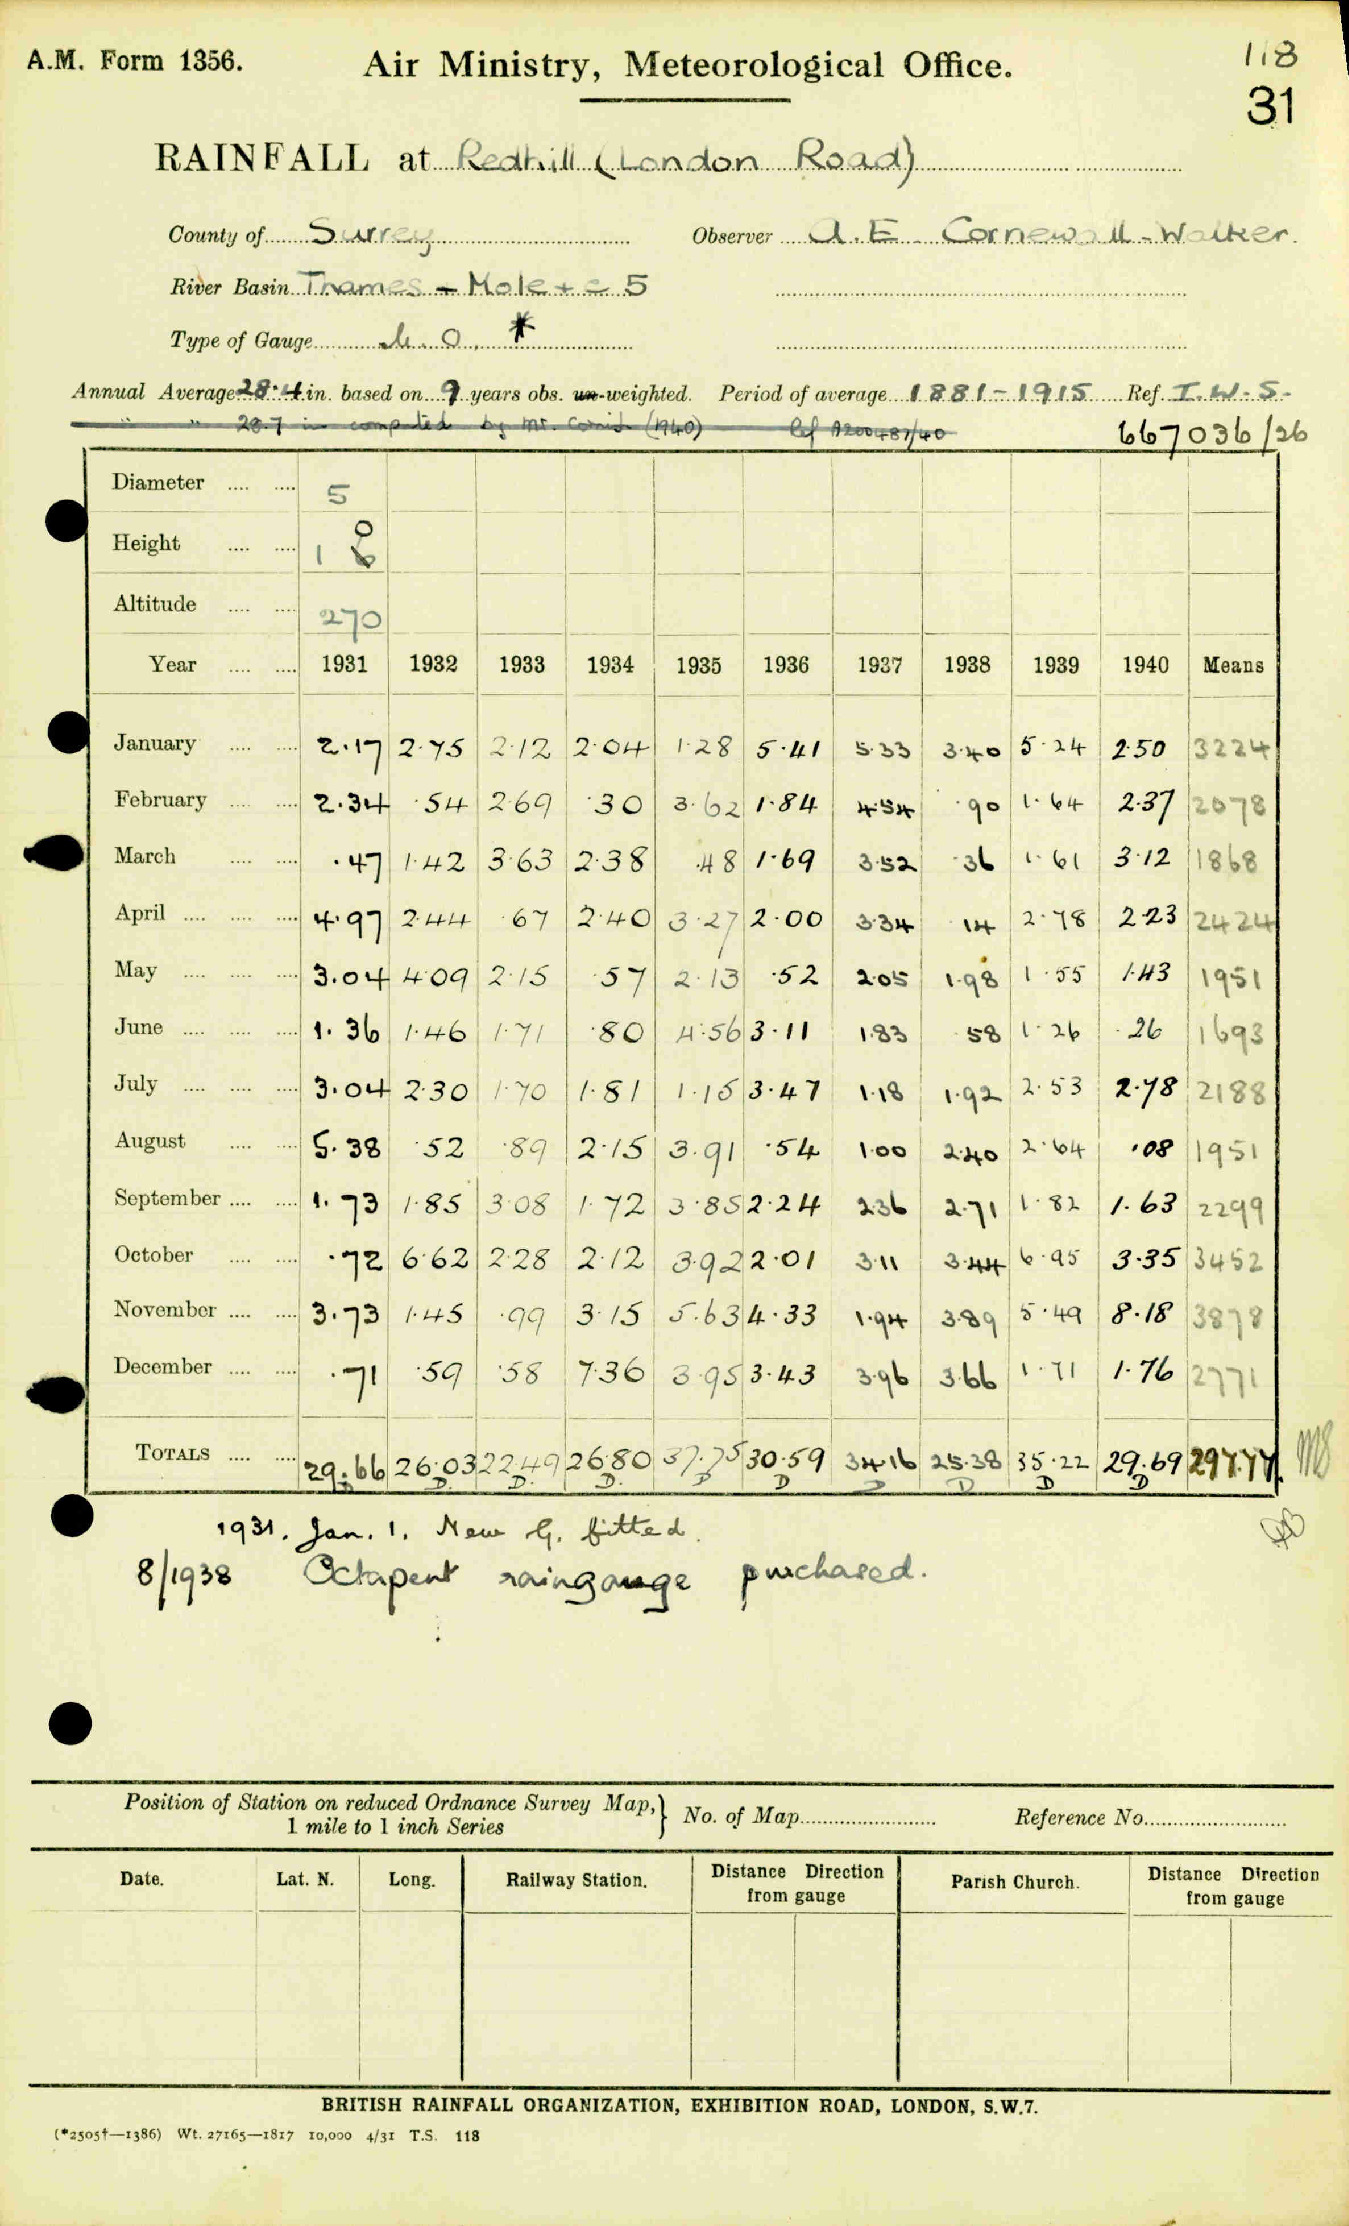 A.M. Form 1356.
Air Ministry, Meteorological Office.
118
31
RAINFALL at Redhill (London Road)
County of Surrey Observer A.E. Cornewall-Walker.
River Basin Thames - Mole + c 5
Type of Gauge M.O. *
Annual Average 28.4 in. based on 9 years obs. un-weighted. Period of average 1881-1915 Ref. I.W.S.
" " 28.7 in computed by Mr. Cornish (1940) Ref A200487/40
667036/26
Diameter .... .... 5
Height .... .... 1 6 0
Altitude .... .... 270
Year .... .... 1931 1932 1933 1934 1935 1936 1937 1938 1939 1940 Means
January .... .... 2.17 2.75 2.12 2.04 1.28 5.41 5.33 3.40 5.24 2.50 3224
February .... .... 2.34 .54 2.69 .30 3.62 1.84 4.54 .90 1.64 2.37 2078
March .... .... .47 1.42 3.63 2.38 .48 1.69 3.52 .36 1.61 3.12 1868
April .... .... .... 4.97 2.44 .67 2.40 3.27 2.00 3.34 .14 2.78 2.23 2424
May .... .... .... 3.04 4.09 2.15 .57 2.13 .52 2.05 1.98 1.55 1.43 1951
June .... .... .... 1.36 1.46 1.71 .80 4.56 3.11 1.83 .58 1.26 .26 1693
July .... .... .... 3.04 2.30 1.70 1.81 1.15 3.47 1.18 1.92 2.53 2.78 2188
August .... .... 5.38 .52 .89 2.15 3.91 .54 1.00 2.40 2.64 .08 1951
September .... .... 1.73 1.85 3.08 1.72 3.85 2.24 2.36 2.71 1.82 1.63 2299
October .... .... .72 6.62 2.28 2.12 3.92 2.01 3.11 3.44 6.95 3.35 3452
November .... .... 3.73 1.45 .99 3.15 5.63 4.33 1.94 3.89 5.49 8.18 3878
December .... .... .71 .59 .58 7.36 3.95 3.43 3.96 3.66 1.71 1.76 2771
TOTALS .... .... 29.66 26.03 22.49 26.80 37.75 30.59 34.16 25.38 35.22 29.69 297.77
D. D. D. D D D D D D
1931. Jan. 1. New G. fitted.
8/1938 Octapent raingauge purchased.
Position of Station on reduced Ordnance Survey Map,
1 mile to 1 inch Series } No. of Map Reference No.
Date. Lat. N. Long. Railway Station. Distance Direction from gauge Parish Church. Distance Direction from gauge
BRITISH RAINFALL ORGANIZATION, EXHIBITION ROAD, LONDON, S.W.7.
(*2505†—1386) Wt. 27165—1817 10,000 4/31 T.S. 118